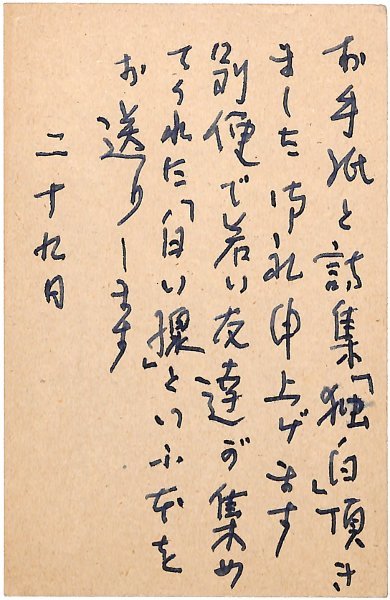 お手紙と詩集「独白」頂き
ました 御礼申上げます
別便で若い友達が集め
てくれた「白い」といふ本を
お送りします
二十九日